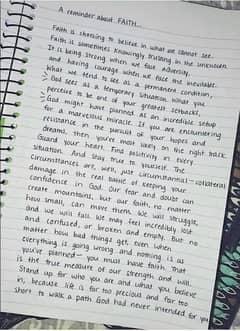 A reminder about FAITH...
Faith is choosing to believe in what we cannot see.
Faith is sometimes knowingly trusting in the unknown.
It is being strong when we face adversity,
and having courage when we face the inevitable.
What we tend to see as a permanent condition,
God sees as a temporary situation. What you
perceive to be one of your greatest setbacks,
God might have planned as an incredible setup
for a marvelous miracle. If you are encountering
resistance in the pursuit of your hopes and
dreams, then you're most likely on the right track.
Guard your heart. Find positivity in every
situation. And stay true to yourself. The
circumstances are, well, just circumstantial - collateral
damage in the real battle of keeping your
confidence in God. Our fear and doubt can
create mountains, but our faith, no matter
how small, can move them. We will struggle
and we will fall. We may feel incredibly lost
and confused, or broken and empty. But no
matter how bad things get, even when
everything is going wrong and nothing is as
you've planned - you must have faith. That
is the true measure of our strength and will.
Stand up for who you are and what you believe
in, because life is far too precious and far too
short to walk a path God had never intended for you